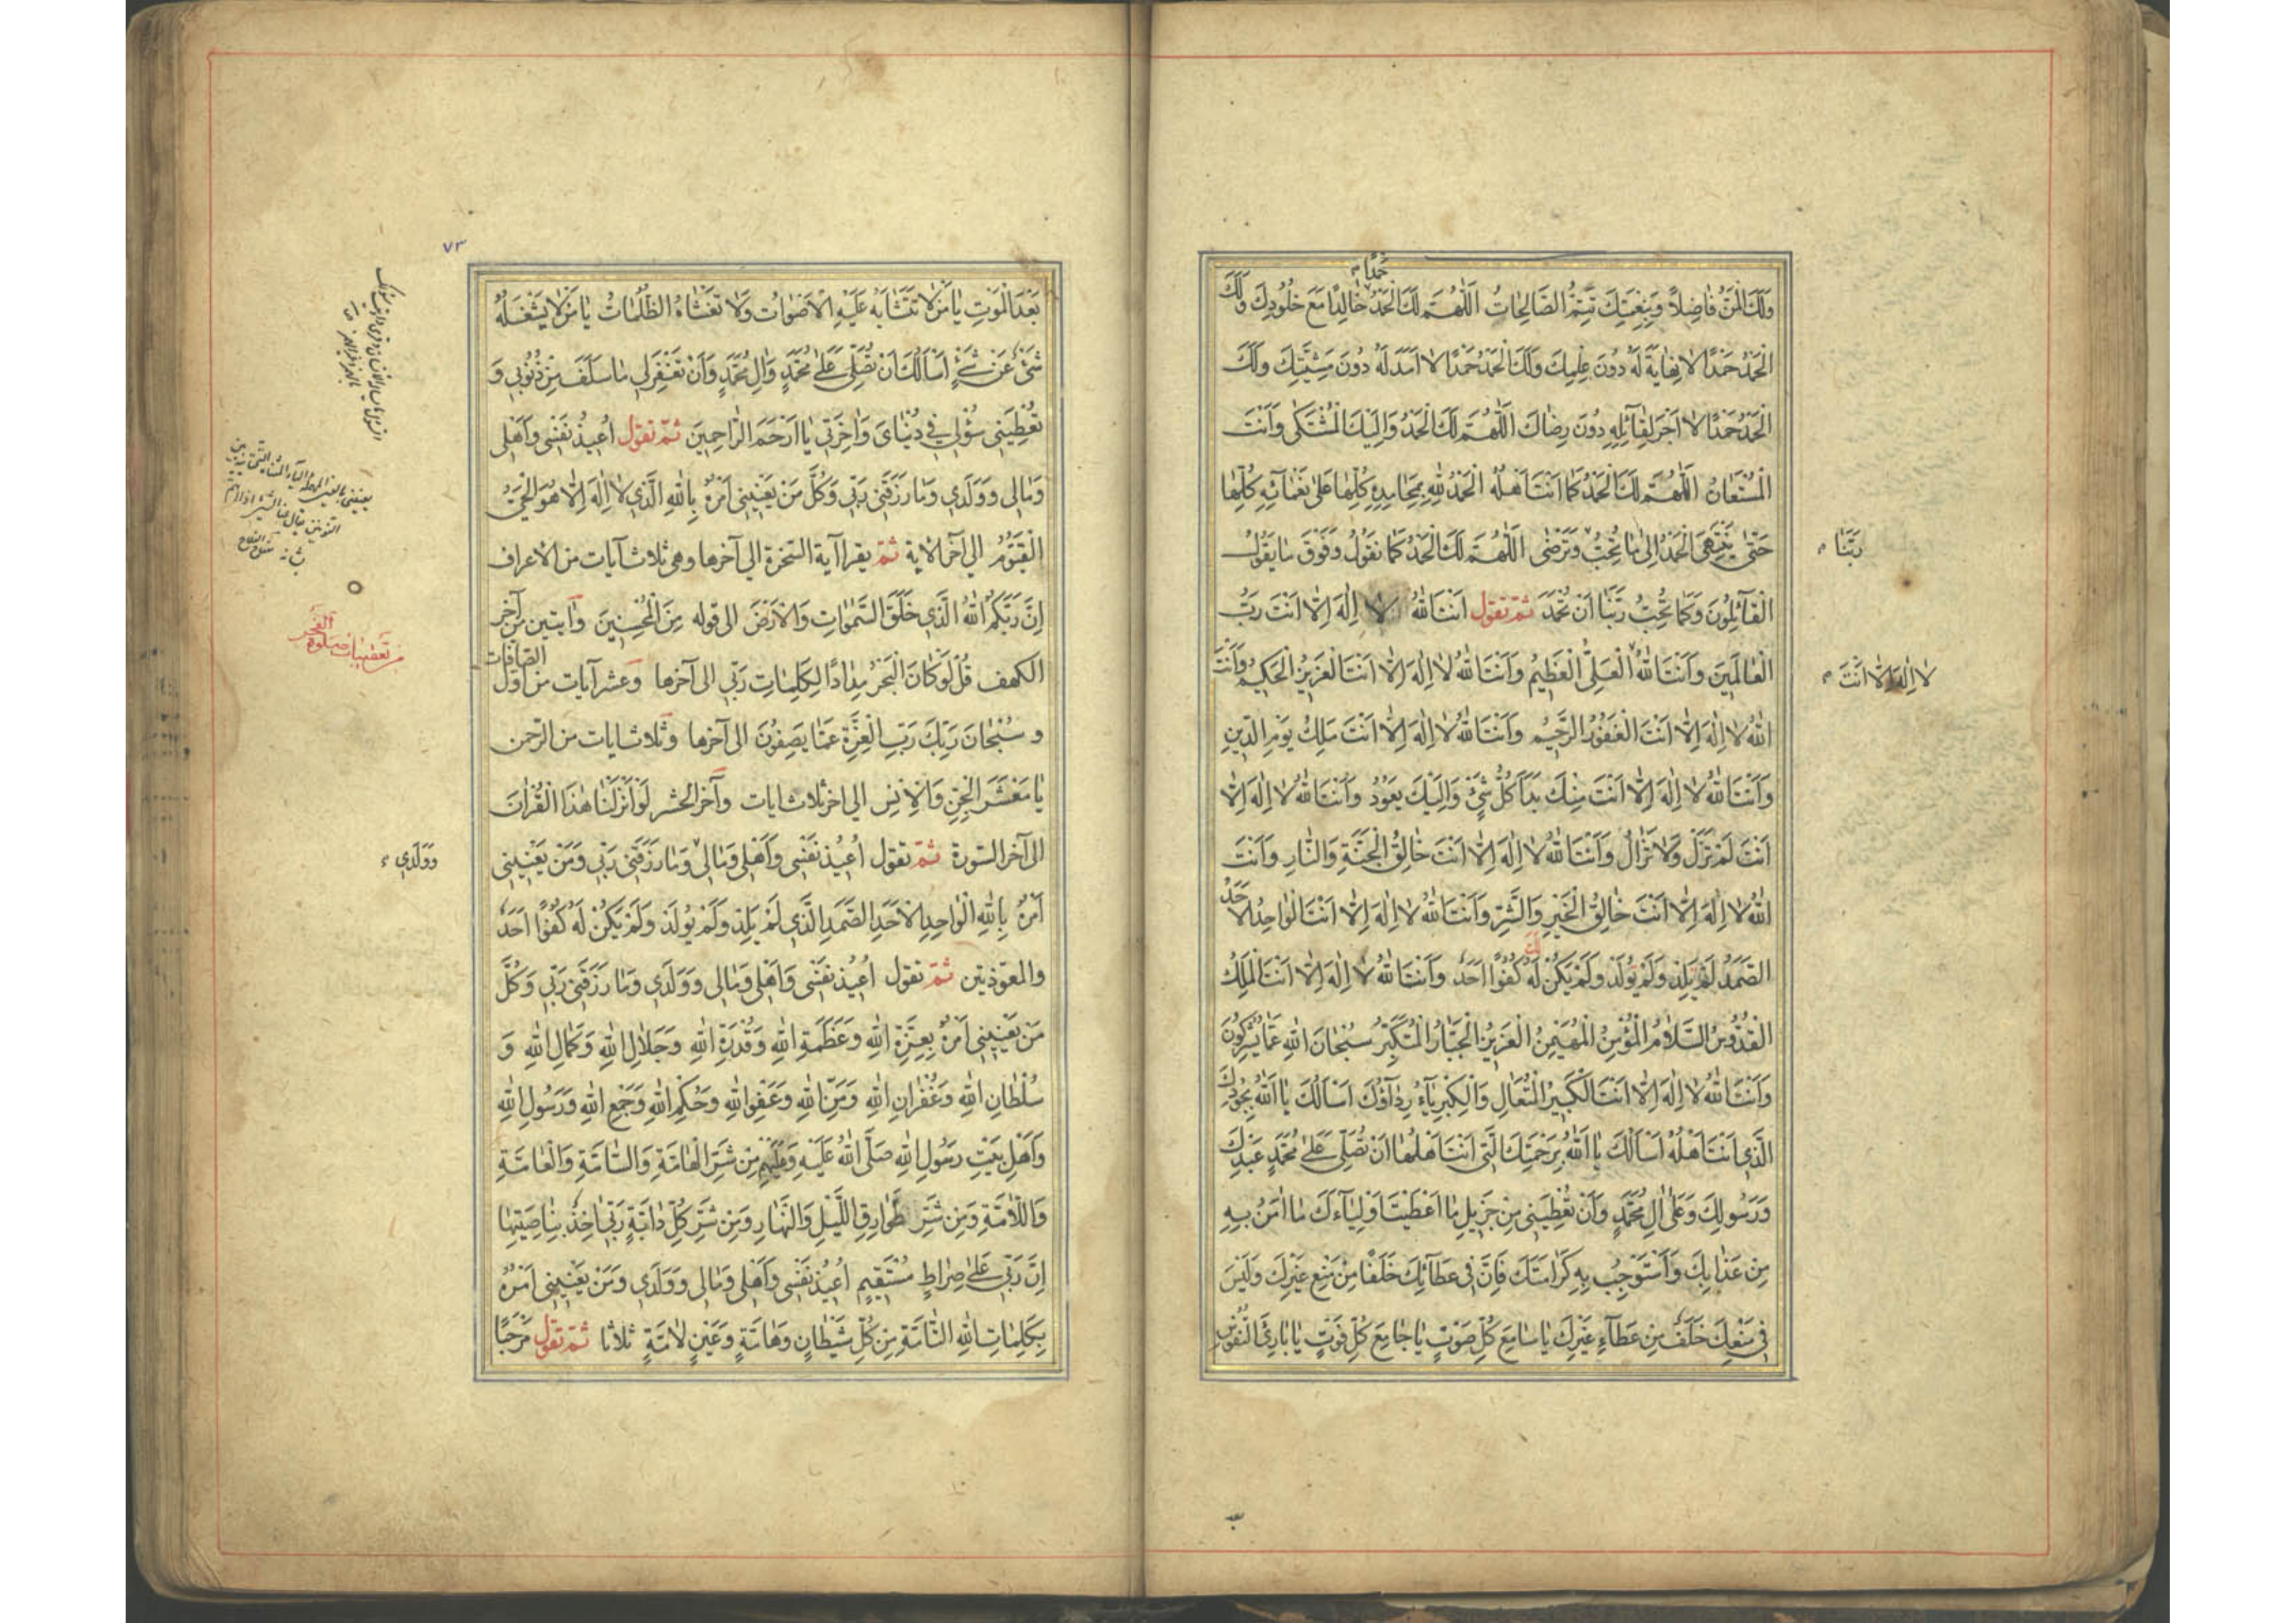 حَمْدًا
وَلَكَ الْمَنُّ فَاضِلًا وَبِنِعْمَتِكَ تَتِمُّ الصَّالِحَاتُ اَللّٰهُمَّ لَكَ الْحَمْدُ خَالِدًا مَعَ خُلُودِكَ وَلَكَ
الْحَمْدُ حَمْدًا لَا نِهَايَةَ لَهُ دُونَ عِلْمِكَ وَلَكَ الْحَمْدُ حَمْدًا لَا اَمَدَ لَهُ دُونَ مَشِيَّتِكَ وَلَكَ
الْحَمْدُ حَمْدًا لَا اَجْرَ لِقَآئِلِهِ دُونَ رِضَاكَ اَللّٰهُمَّ لَكَ الْحَمْدُ وَاِلَيْكَ الْمُشْتَكٰى وَاَنْتَ
الْمُسْتَعَانُ اَللّٰهُمَّ لَكَ الْحَمْدُ كَمَا اَنْتَ اَهْلُهُ الْحَمْدُ لِلّٰهِ بِمَحَامِدِهِ كُلِّهَا عَلٰى نَعْمَآئِهِ كُلِّهَا
حَتّٰى يَنْتَهِىَ الْحَمْدُ اِلٰى مَا تُحِبُّ وَتَرْضٰى اَللّٰهُمَّ لَكَ الْحَمْدُ كَمَا نَقُولُ وَفَوْقَ مَا يَقُولُ
رَبَّنَا
الْقَآئِلُونَ وَكَمَا تُحِبُّ رَبَّنَا اَنْ تُحْمَدَ ثمّ تقول اَنْتَ اللّٰهُ لَا اِلٰهَ اِلَّا اَنْتَ رَبُّ
الْعَالَمِينَ وَاَنْتَ اللّٰهُ الْعَلِىُّ الْعَظِيمُ وَاَنْتَ اللّٰهُ لَا اِلٰهَ اِلَّا اَنْتَ الْعَزِيزُ الْحَكِيمُ وَاَنْتَ
لَا اِلٰهَ اِلَّا اَنْتَ
اللّٰهُ لَا اِلٰهَ اِلَّا اَنْتَ الْغَفُورُ الرَّحِيمُ وَاَنْتَ اللّٰهُ لَا اِلٰهَ اِلَّا اَنْتَ مَلِكُ يَوْمِ الدِّينِ
وَاَنْتَ اللّٰهُ لَا اِلٰهَ اِلَّا اَنْتَ مِنْكَ بَدَأَ كُلُّ شَىْءٍ وَاِلَيْكَ يَعُودُ وَاَنْتَ اللّٰهُ لَا اِلٰهَ اِلَّا
اَنْتَ لَمْ تَزَلْ وَلَا تَزَالُ وَاَنْتَ اللّٰهُ لَا اِلٰهَ اِلَّا اَنْتَ خَالِقُ الْجَنَّةِ وَالنَّارِ وَاَنْتَ
اللّٰهُ لَا اِلٰهَ اِلَّا اَنْتَ خَالِقُ الْخَيْرِ وَالشَّرِّ وَاَنْتَ اللّٰهُ لَا اِلٰهَ اِلَّا اَنْتَ الْوَاحِدُ الْاَحَدُ
الصَّمَدُ لَمْ يَلِدْ وَلَمْ يُولَدْ وَلَمْ يَكُنْ لَهُ كُفُوًا اَحَدٌ وَاَنْتَ اللّٰهُ لَا اِلٰهَ اِلَّا اَنْتَ الْمَلِكُ
الْقُدُّوسُ السَّلَامُ الْمُؤْمِنُ الْمُهَيْمِنُ الْعَزِيزُ الْجَبَّارُ الْمُتَكَبِّرُ سُبْحَانَ اللّٰهِ عَمَّا يُشْرِكُونَ
وَاَنْتَ اللّٰهُ لَا اِلٰهَ اِلَّا اَنْتَ الْكَبِيرُ الْمُتَعَالِ وَالْكِبْرِيَآءُ رِدَآؤُكَ اَسْاَلُكَ يَا اَللّٰهُ بِجُودِكَ
الَّذِى اَنْتَ اَهْلُهُ اَسْاَلُكَ يَا اَللّٰهُ بِرَحْمَتِكَ الَّتِى اَنْتَ اَهْلُهَا اَنْ تُصَلِّىَ عَلٰى مُحَمَّدٍ عَبْدِكَ
وَرَسُولِكَ وَعَلٰى اٰلِ مُحَمَّدٍ وَاَنْ تُعْطِيَنِى مِنْ جَزِيلِ مَا اَعْطَيْتَ اَوْلِيَآءَكَ مَا اٰمَنُ بِهِ
مِنْ عَذَابِكَ وَاَسْتَوْجِبُ بِهِ كَرَامَتَكَ فَاِنَّ فِى عَطَآئِكَ خَلَفًا مِنْ مَنْعِ غَيْرِكَ وَلَيْسَ
فِى مَنْعِكَ خَلَفٌ مِنْ عَطَآءِ غَيْرِكَ يَا سَامِعَ كُلِّ صَوْتٍ يَا جَامِعَ كُلِّ فَوْتٍ يَا بَارِئَ النُّفُوسِ
بعد
٧٣
بَعْدَ الْمَوْتِ يَا مَنْ لَا تَتَشَابَهُ عَلَيْهِ الْاَصْوَاتُ وَلَا تَغْشَاهُ الظُّلُمَاتُ يَا مَنْ لَا يَشْغَلُهُ
شَىْءٌ عَنْ شَىْءٍ اَسْاَلُكَ اَنْ تُصَلِّىَ عَلٰى مُحَمَّدٍ وَاٰلِ مُحَمَّدٍ وَاَنْ تَغْفِرَ لِى مَا سَلَفَ مِنْ ذُنُوبِى وَ
تُعْطِيَنِى سُؤْلِى فِى دُنْيَاىَ وَاٰخِرَتِى يَا اَرْحَمَ الرَّاحِمِينَ ثمّ تقول اُعِيذُ نَفْسِى وَاَهْلِى
وَمَالِى وَوَلَدِى وَمَا رَزَقَنِى رَبِّى وَكُلَّ مَنْ يَعْنِينِى اَمْرُهُ بِاللّٰهِ الَّذِى لَا اِلٰهَ اِلَّا هُوَ الْحَىُّ
الْقَيُّومُ الى آخر الآية ثمّ يقرا آية السخرة الى آخرها وهى ثلاث آيات من الاعراف
اِنَّ رَبَّكُمُ اللّٰهُ الَّذِى خَلَقَ السَّمٰوَاتِ وَالْاَرْضَ الى قوله مِنَ الْمُحْسِنِينَ وآيتين من آخر
الكهف قُلْ لَوْ كَانَ الْبَحْرُ مِدَادًا لِكَلِمَاتِ رَبِّى الى آخرها وعشر آيات من اوّل الصافات
و سُبْحَانَ رَبِّكَ رَبِّ الْعِزَّةِ عَمَّا يَصِفُونَ الى آخرها وثلاث ايات من الرّحمن
يَا مَعْشَرَ الْجِنِّ وَالْاِنْسِ الى اخر ثلاث ايات وآخر الحشر لَوْ اَنْزَلْنَا هٰذَا الْقُرْاٰنَ
الى آخر السّورة ثمّ تقول اُعِيذُ نَفْسِى وَاَهْلِى وَمَالِى وَمَا رَزَقَنِى رَبِّى وَمَنْ يَعْنِينِى
وَوَلَدِى
اَمْرُهُ بِاللّٰهِ الْوَاحِدِ الْاَحَدِ الصَّمَدِ الَّذِى لَمْ يَلِدْ وَلَمْ يُولَدْ وَلَمْ يَكُنْ لَهُ كُفُوًا اَحَدٌ
والمعوّذتين ثمّ تقول اُعِيذُ نَفْسِى وَاَهْلِى وَمَالِى وَوَلَدِى وَمَا رَزَقَنِى رَبِّى وَكُلَّ
مَنْ يَعْنِينِى اَمْرُهُ بِعِزَّةِ اللّٰهِ وَعَظَمَةِ اللّٰهِ وَقُدْرَةِ اللّٰهِ وَجَلَالِ اللّٰهِ وَكَمَالِ اللّٰهِ وَ
سُلْطَانِ اللّٰهِ وَغُفْرَانِ اللّٰهِ وَمَنِّ اللّٰهِ وَعَفْوِ اللّٰهِ وَحُكْمِ اللّٰهِ وَجَمْعِ اللّٰهِ وَرَسُولِ اللّٰهِ
وَاَهْلِ بَيْتِ رَسُولِ اللّٰهِ صَلَّى اللّٰهُ عَلَيْهِ وَعَلَيْهِمْ مِنْ شَرِّ الْهَامَّةِ وَالسَّامَّةِ وَالْعَامَّةِ
وَاللَّامَّةِ وَمِنْ شَرِّ طَوَارِقِ اللَّيْلِ وَالنَّهَارِ وَمِنْ شَرِّ كُلِّ دَابَّةٍ رَبِّى اٰخِذٌ بِنَاصِيَتِهَا
اِنَّ رَبِّى عَلٰى صِرَاطٍ مُسْتَقِيمٍ اُعِيذُ نَفْسِى وَاَهْلِى وَمَالِى وَوَلَدِى وَمَنْ يَعْنِينِى اَمْرُهُ
بِكَلِمَاتِ اللّٰهِ التَّامَّةِ مِنْ كُلِّ شَيْطَانٍ وَهَامَّةٍ وَعَيْنٍ لَامَّةٍ ثلاثا ثمّ تقول مَرْحَبًا
من تعقيبات صلوة الفجر